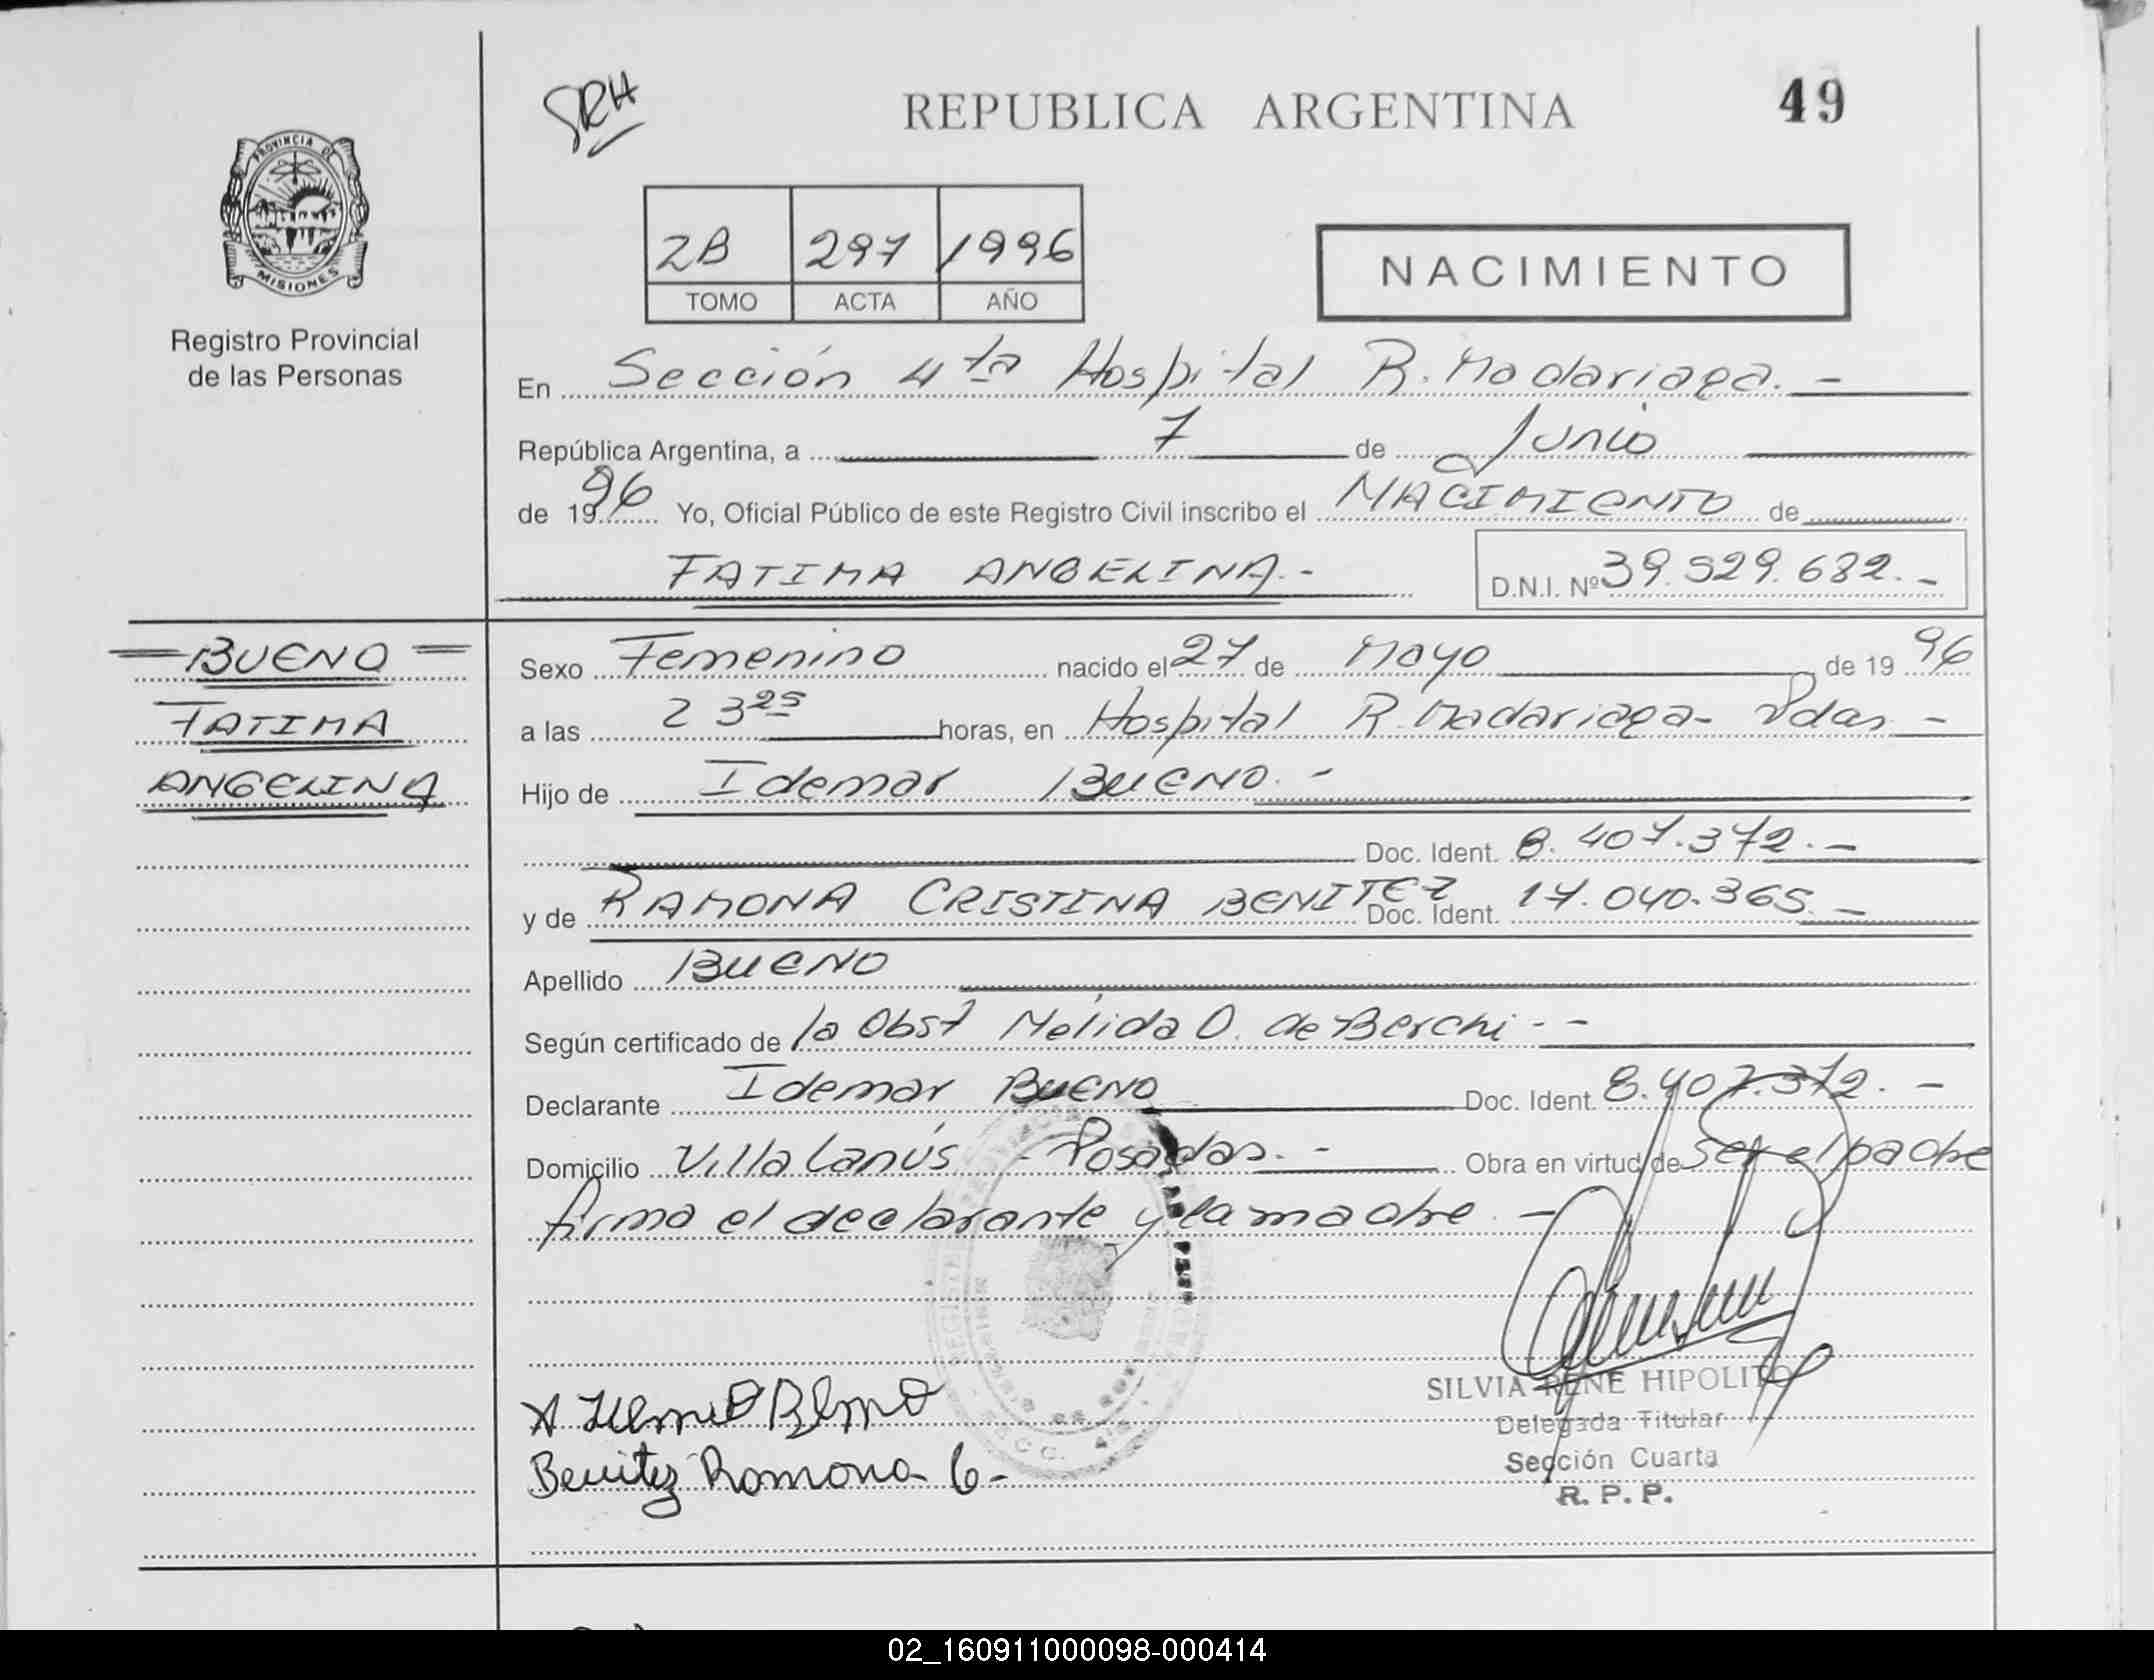 SRH
REPUBLICA ARGENTINA
49
PROVINCIA DE
MISIONES
Registro Provincial
de las Personas
2B 297 1996
TOMO ACTA AÑO
NACIMIENTO
En Sección 4ta Hospital R. Madariaga. -
República Argentina, a 7 de Junio
de 1996 Yo, Oficial Público de este Registro Civil inscribo el NACIMIENTO de
FATIMA ANGELINA.-
D.N.I. Nº 39.529.682.-
= BUENO =
FATIMA
ANGELINA
Sexo Femenino nacido el 27 de Mayo de 1996
a las 23 25 horas, en Hospital R. Madariaga- Pdas -
Hijo de Idemar BUENO.-
Doc. Ident. 8.407.372.-
y de RAMONA CRISTINA BENITEZ Doc. Ident. 17.040.365.-
Apellido BUENO
Según certificado de la Obst Nélida O. de Berchi - -
Declarante Idemar BUENO Doc. Ident. 8.407.372.-
Domicilio Villa Lanús - Posadas.- Obra en virtud de ser el padre
firma el declarante y la madre.-
Benitez Ramona C-
SILVIA RENE HIPOLITO
Delegada Titular
Sección Cuarta
R. P. P.
02_160911000098-000414